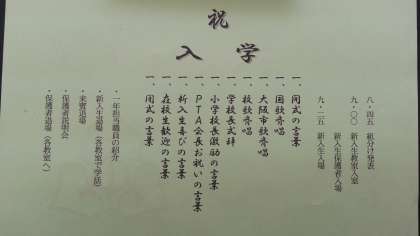 祝
入学
八・四五 組分け発表
九・〇〇 新入生教室入室
新入生保護者入場
九・二五 新入生入場
一、開式の言葉
一、国歌斉唱
一、大阪市歌斉唱
一、校歌斉唱
一、学校長式辞
一、小学校長激励の言葉
一、PTA会長お祝いの言葉
一、新入生喜びの言葉
一、在校生歓迎の言葉
一、閉式の言葉
・一年担当職員の紹介
・新入生退場(各教室で学活)
・来賓退場
・保護者説明会
・保護者退場(各教室へ)